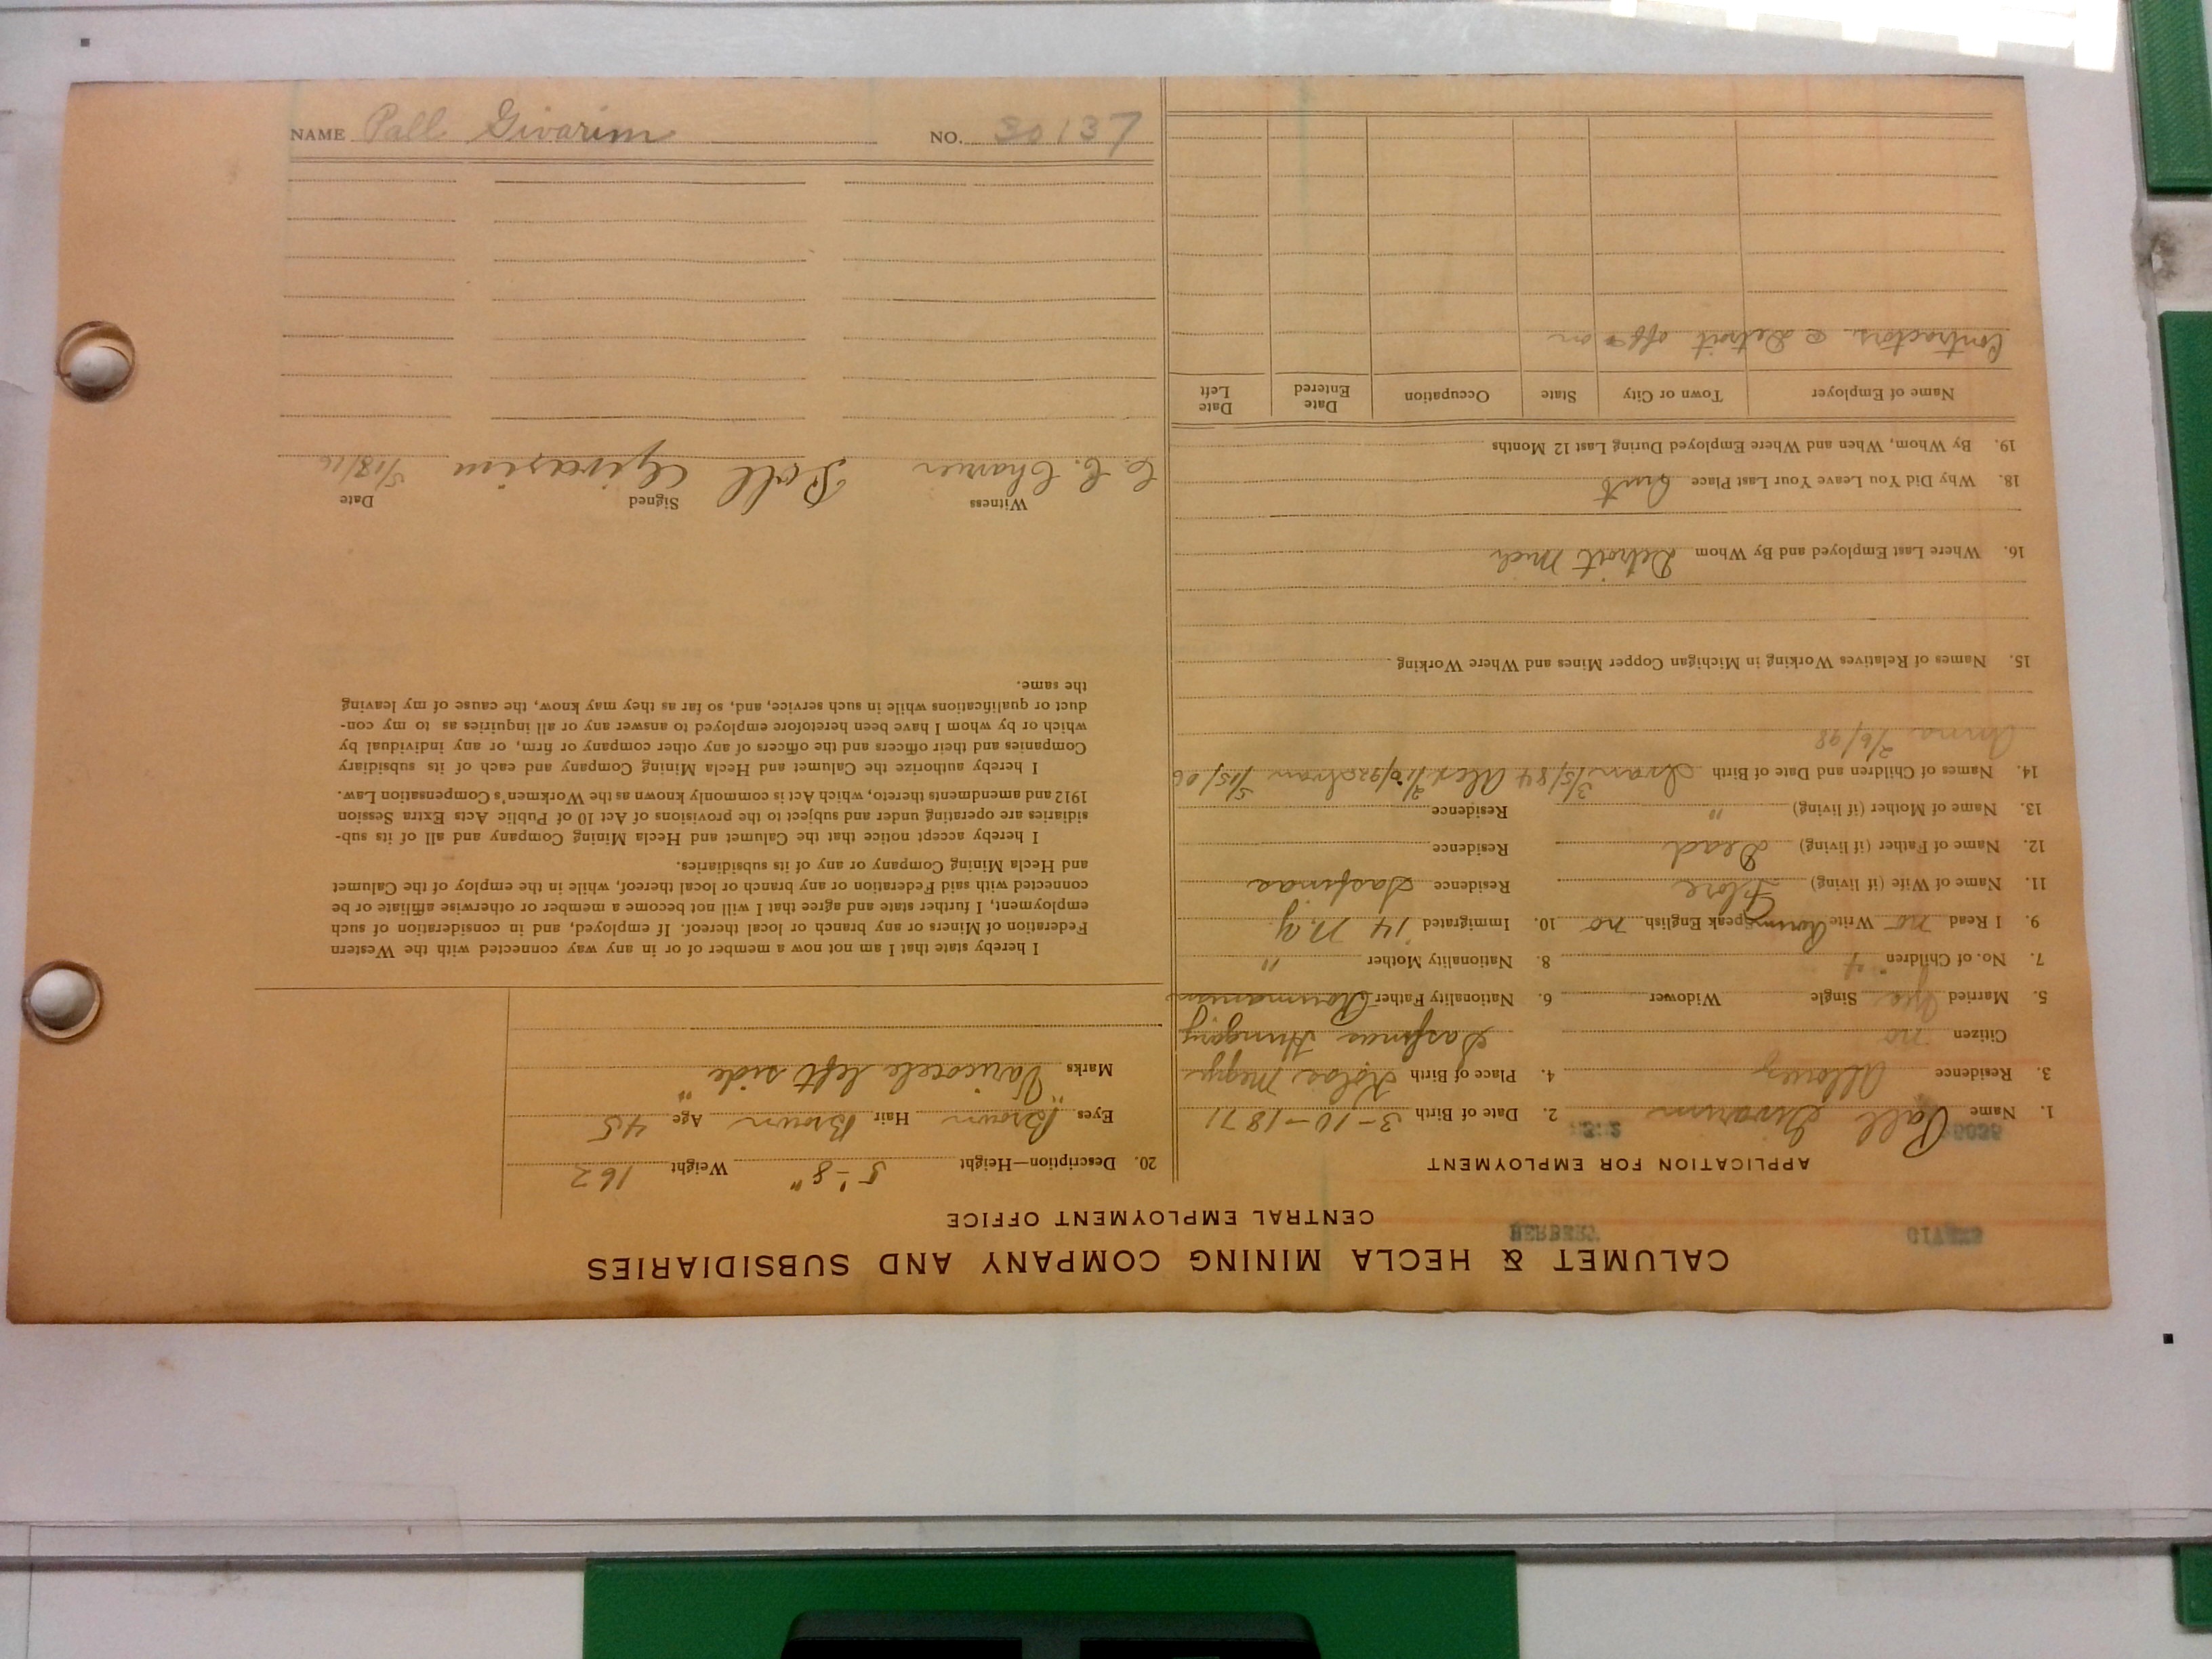 CALUMET & HECLA MINING COMPANY AND SUBSIDIARIES
CENTRAL EMPLOYMENT OFFICE
APPLICATION FOR EMPLOYMENT
1. Name Pall Givarim 2. Date of Birth 3-10-1871
3. Residence Allouez 4. Place of Birth Kolos Megye
Citizen no Hungary
5. Married yes Single Widower 6. Nationality Father Roumanian
7. No. of Children 4 8. Nationality Mother "
9. I Read no Write Speak English no 10. Immigrated 14 N.Y.
11. Name of Wife (if living) Flore Residence
12. Name of Father (if living) Dead Residence
13. Name of Mother (if living) " Residence
14. Names of Children and Date of Birth Ivan 3/5/84 Alex 2/10/92 5/15/06
Anna 2/6/98
15. Names of Relatives Working in Michigan Copper Mines and Where Working
16. Where Last Employed and By Whom Detroit Mich
18. Why Did You Leave Your Last Place Quit
19. By Whom, When and Where Employed During Last 12 Months
Name of Employer Town or City State Occupation Date Entered Date Left
Contractors @ Detroit off & on
20. Description—Height 5'-8" Weight 162
Eyes Brown Hair Brown Age 45
Marks "Varicocele left side"
I hereby state that I am not now a member of or in any way connected with the Western
Federation of Miners or any branch or local thereof. If employed, and in consideration of such
employment, I further state and agree that I will not become a member or otherwise affiliate or be
connected with said Federation or any branch or local thereof, while in the employ of the Calumet
and Hecla Mining Company or any of its subsidiaries.
I hereby accept notice that the Calumet and Hecla Mining Company and all of its sub-
sidiaries are operating under and subject to the provisions of Act 10 of Public Acts Extra Session
1912 and amendments thereto, which Act is commonly known as the Workmen's Compensation Law.
I hereby authorize the Calumet and Hecla Mining Company and each of its subsidiary
Companies and their officers and the officers of any other company or firm, or any individual by
which or by whom I have been heretofore employed to answer any or all inquiries as to my con-
duct or qualifications while in such service, and, so far as they may know, the cause of my leaving
the same.
Witness Signed Date
Pall Givarim 5/18/16
NAME Pall Givarim NO. 30137